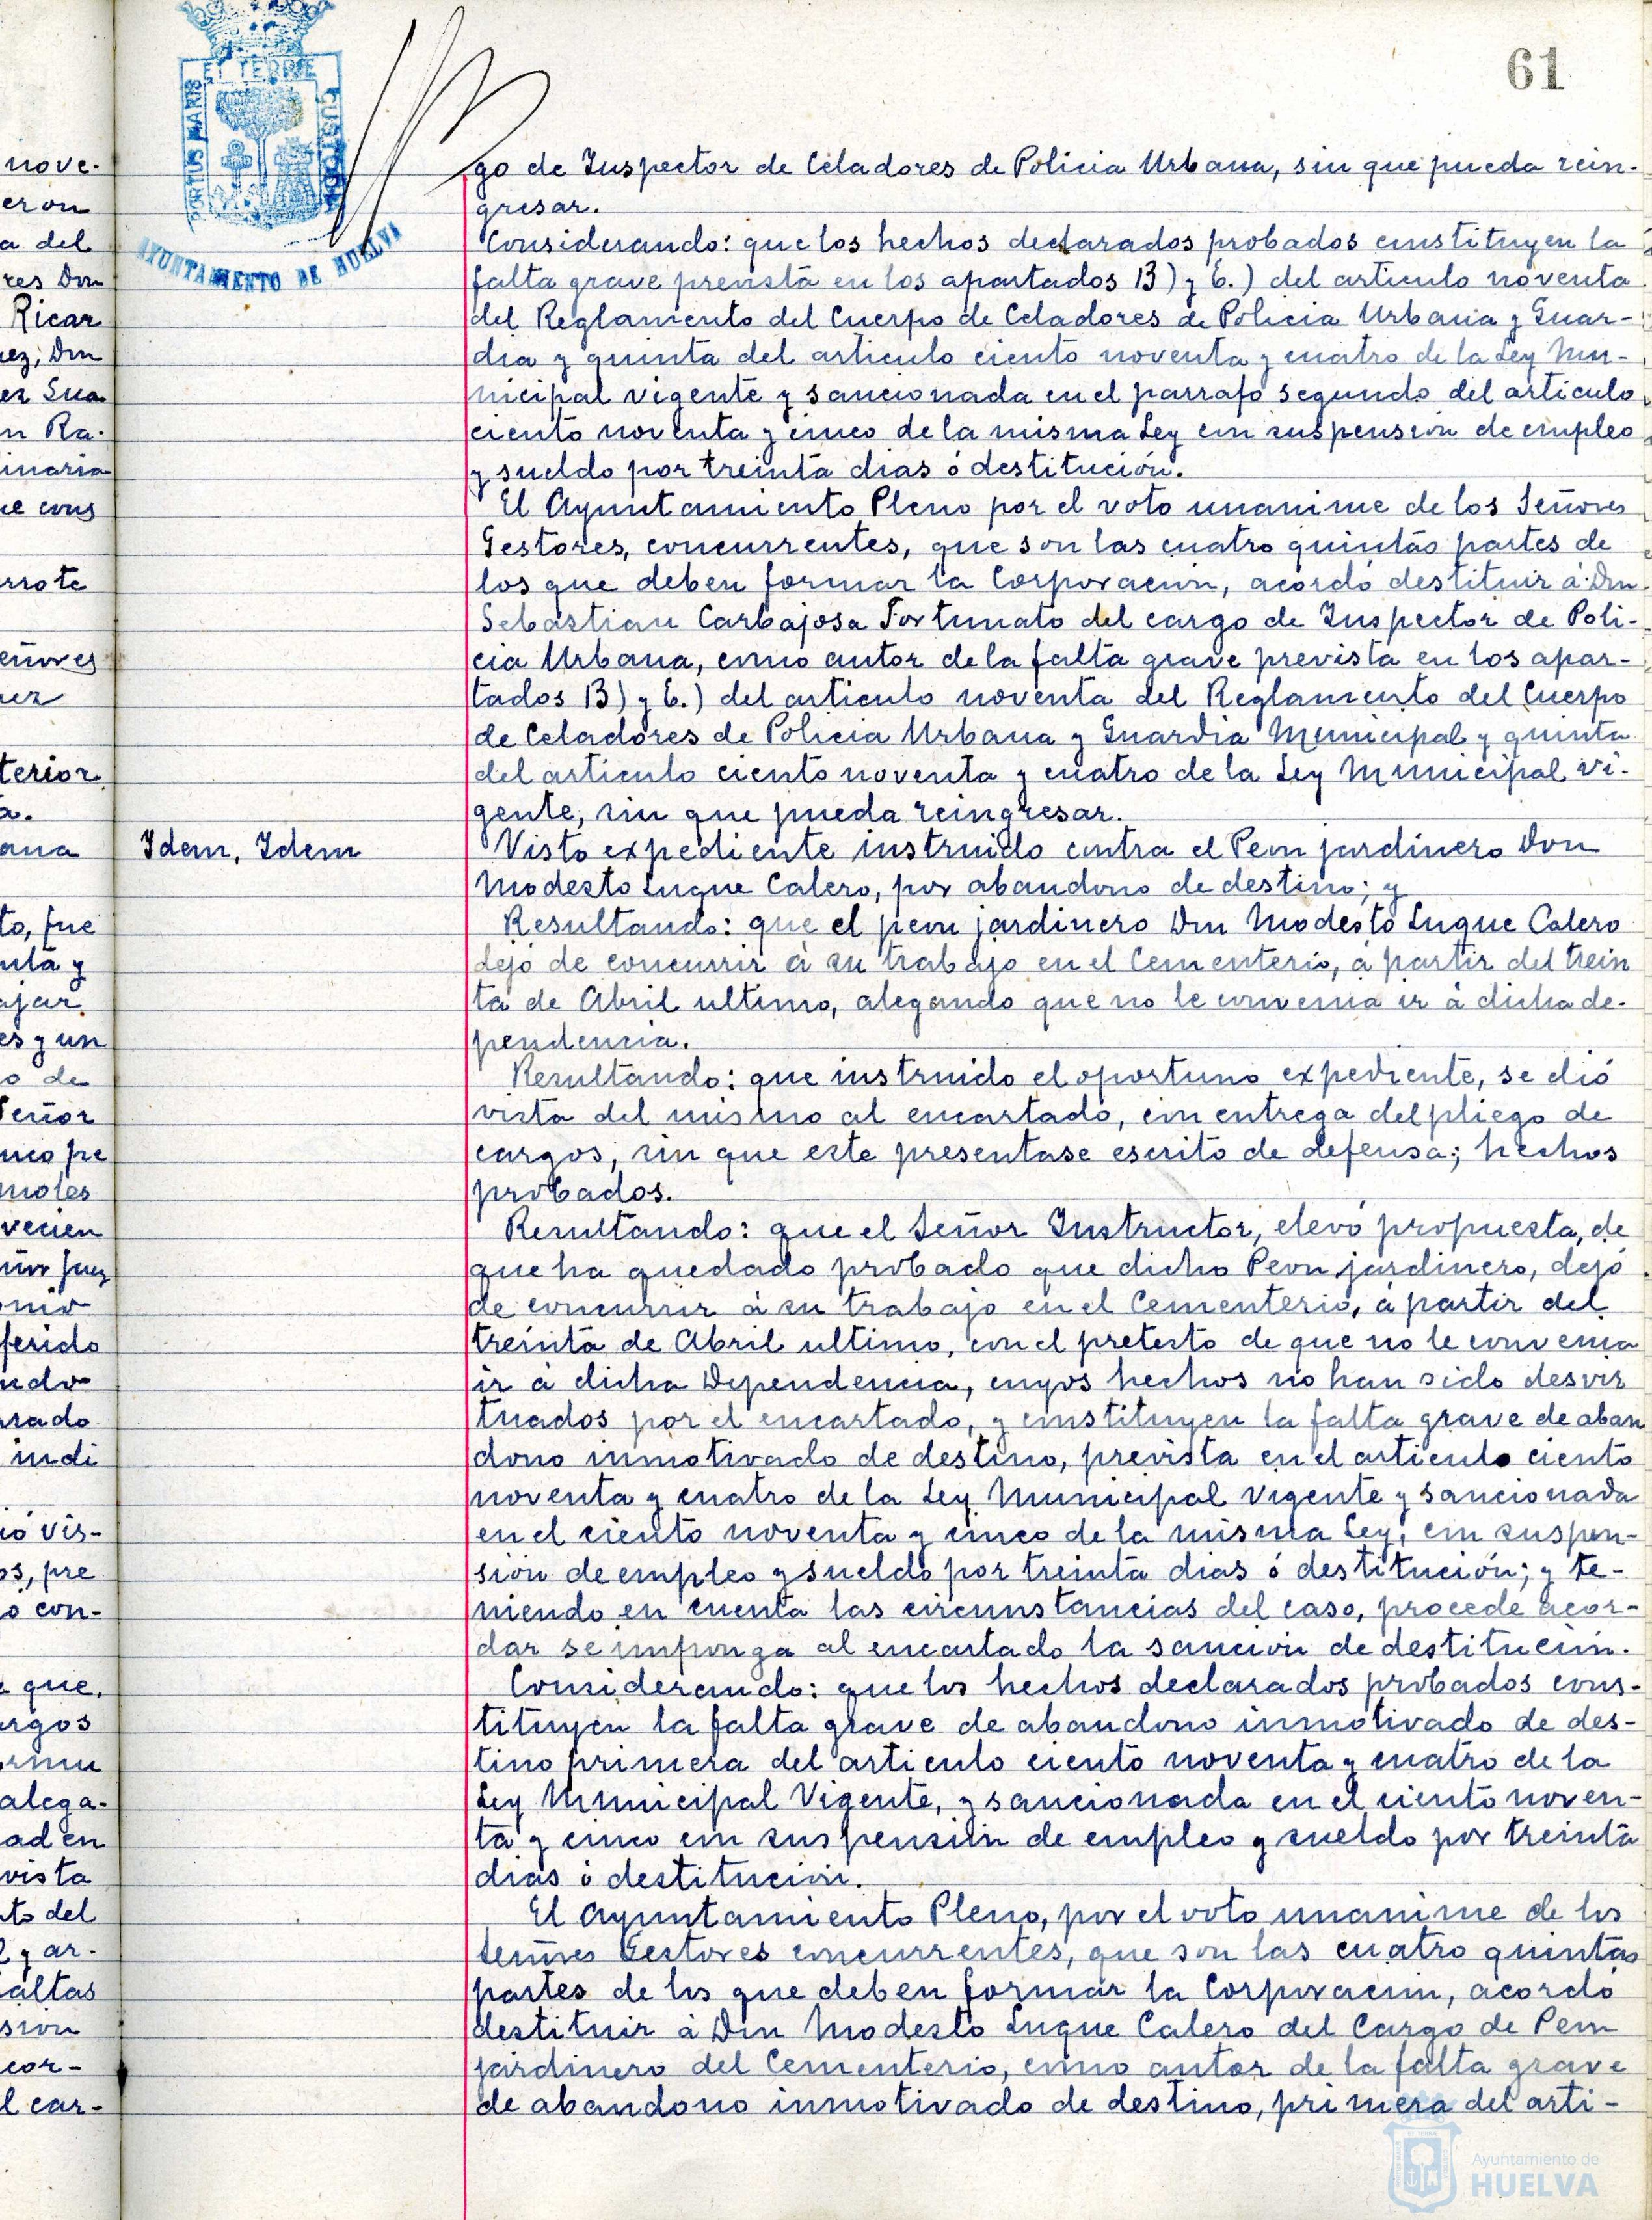 61
EL TERRE
PORTUS MARIS
CUSTODIA
AYUNTAMIENTO DE HUELVA
go de Inspector de Celadores de Policia Urbana, sin que pueda rein-
gresar.
Considerando: que los hechos declarados probados constituyen la
falta grave prevista en los apartados B) y E.) del articulo noventa
del Reglamento del Cuerpo de Celadores de Policia Urbana y Guar-
dia y quinta del articulo ciento noventa y cuatro de la Ley Mu-
nicipal vigente y sancionada en el parrafo segundo del articulo
ciento noventa y cinco de la misma Ley con suspensión de empleo
y sueldo por treinta dias ó destitución.
El Ayuntamiento Pleno por el voto unanime de los Señores
Gestores, concurrentes, que son las cuatro quintas partes de
los que deben formar la Corporación, acordó destituir á Don
Sebastian Carbajosa Fortunato del cargo de Inspector de Poli-
cia Urbana, como autor de la falta grave prevista en los apar-
tados B) y E.) del articulo noventa del Reglamento del Cuerpo
de Celadores de Policia Urbana y Guardia Municipal y quinta
del articulo ciento noventa y cuatro de la Ley Municipal vi-
gente, sin que pueda reingresar.
Idem, Idem
Visto expediente instruido contra el Peon jardinero Don
Modesto Luque Calero, por abandono de destino; y
Resultando: que el peon jardinero Don Modesto Luque Calero
dejó de concurrir á su trabajo en el Cementerio, á partir del trein
ta de Abril ultimo, alegando que no le convenia ir á dicha de-
pendencia.
Resultando: que instruido el oportuno expediente, se dió
vista del mismo al encartado, con entrega del pliego de
cargos, sin que este presentase escrito de defensa; hechos
probados.
Resultando: que el Señor Instructor, elevó propuesta, de
que ha quedado probado que dicho Peon jardinero, dejó
de concurrir á su trabajo en el Cementerio, á partir del
treinta de Abril ultimo, con el pretesto de que no le convenia
ir á dicha Dependencia, cuyos hechos no han sido desvir
tuados por el encartado, y constituyen la falta grave de aban
dono inmotivado de destino, prevista en el articulo ciento
noventa y cuatro de la Ley Municipal Vigente y sancionada
en el ciento noventa y cinco de la misma Ley, con suspen-
sión de empleo y sueldo por treinta dias ó destitución; y te-
niendo en cuenta las circunstancias del caso, procede acor-
dar se imponga al encartado la sanción de destitución.
Considerando: que los hechos declarados probados cons-
tituyen la falta grave de abandono inmotivado de des-
tino primera del articulo ciento noventa y cuatro de la
Ley Municipal Vigente, y sancionada en el ciento noven-
ta y cinco con suspensión de empleo y sueldo por treinta
dias ó destitución.
El Ayuntamiento Pleno, por el voto unanime de los
Señores Gestores concurrentes, que son las cuatro quintas
partes de los que deben formar la Corporación, acordó
destituir á Don Modesto Luque Calero del Cargo de Peon
jardinero del Cementerio, como autor de la falta grave
de abandono inmotivado de destino, primera del arti-
nove-
eron
a del
res Don
Ricar
ez, Don
ez Sua
n Ra-
inaria
ue cons
rrote
eñores
uez
terior
a.
ana
to, fue
nta y
ajar
es y un
o de
Señor
nco pe
moles
vecien
ñor Juez
onio
ferido
ndo
rado
indi
ió vis-
os, pre
o con-
e que,
argos
ormu
alega-
ad en
vista
to del
y ar-
altas
sion
cor-
l car-
Ayuntamiento de
HUELVA